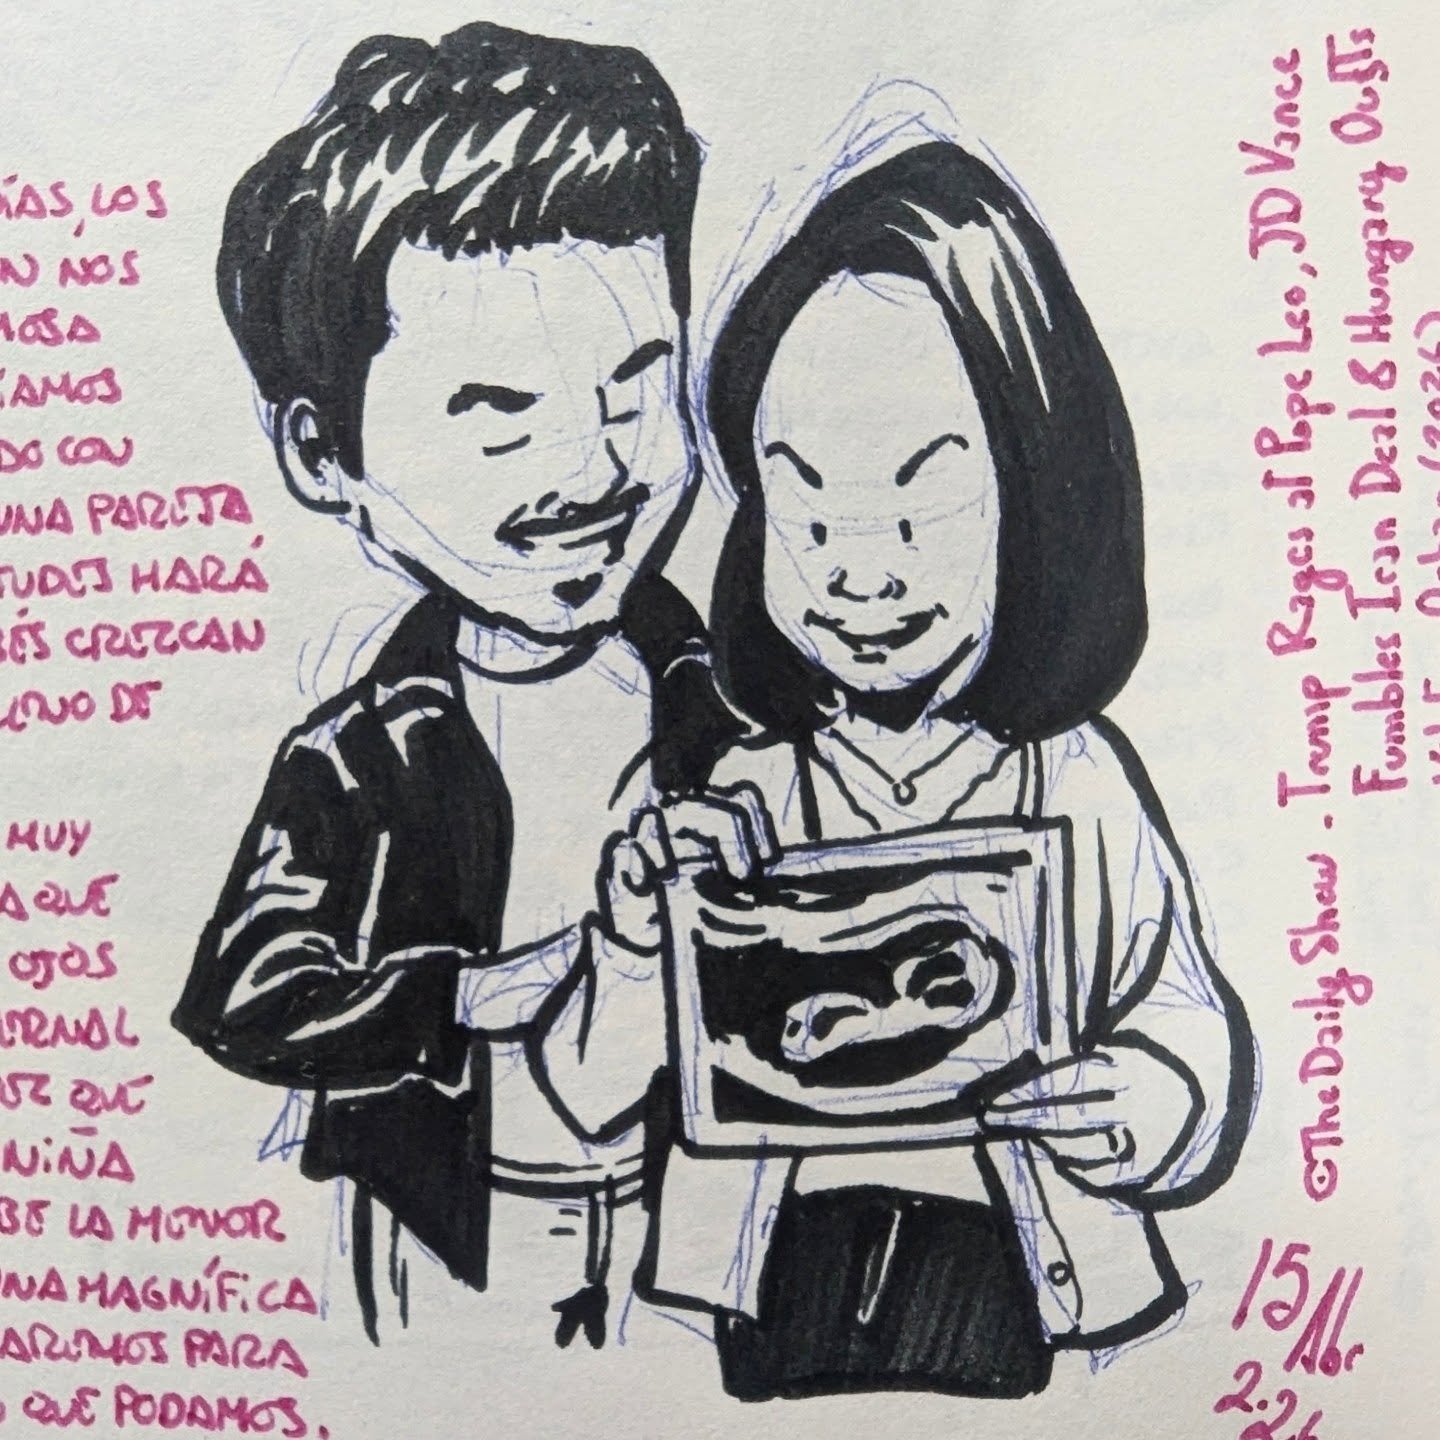 DÍAS, LOS
N NOS
MOSA
ÍAMOS
DO CON
UNA PAREJA
TUDES HARÁ
BÉS CREZCAN
LENO DE
MUY
A QUE
OJOS
ERNAL
QUE
NIÑA
BE LA MENOR
UNA MAGNÍFICA
AREMOS PARA
O QUE PODAMOS.
©The Daily Show - Trump Rages at Pope Leo, JD Vance
Fumbles Iran Deal & Hungary Ousts
Orban (2026)
15/Abr
2.26